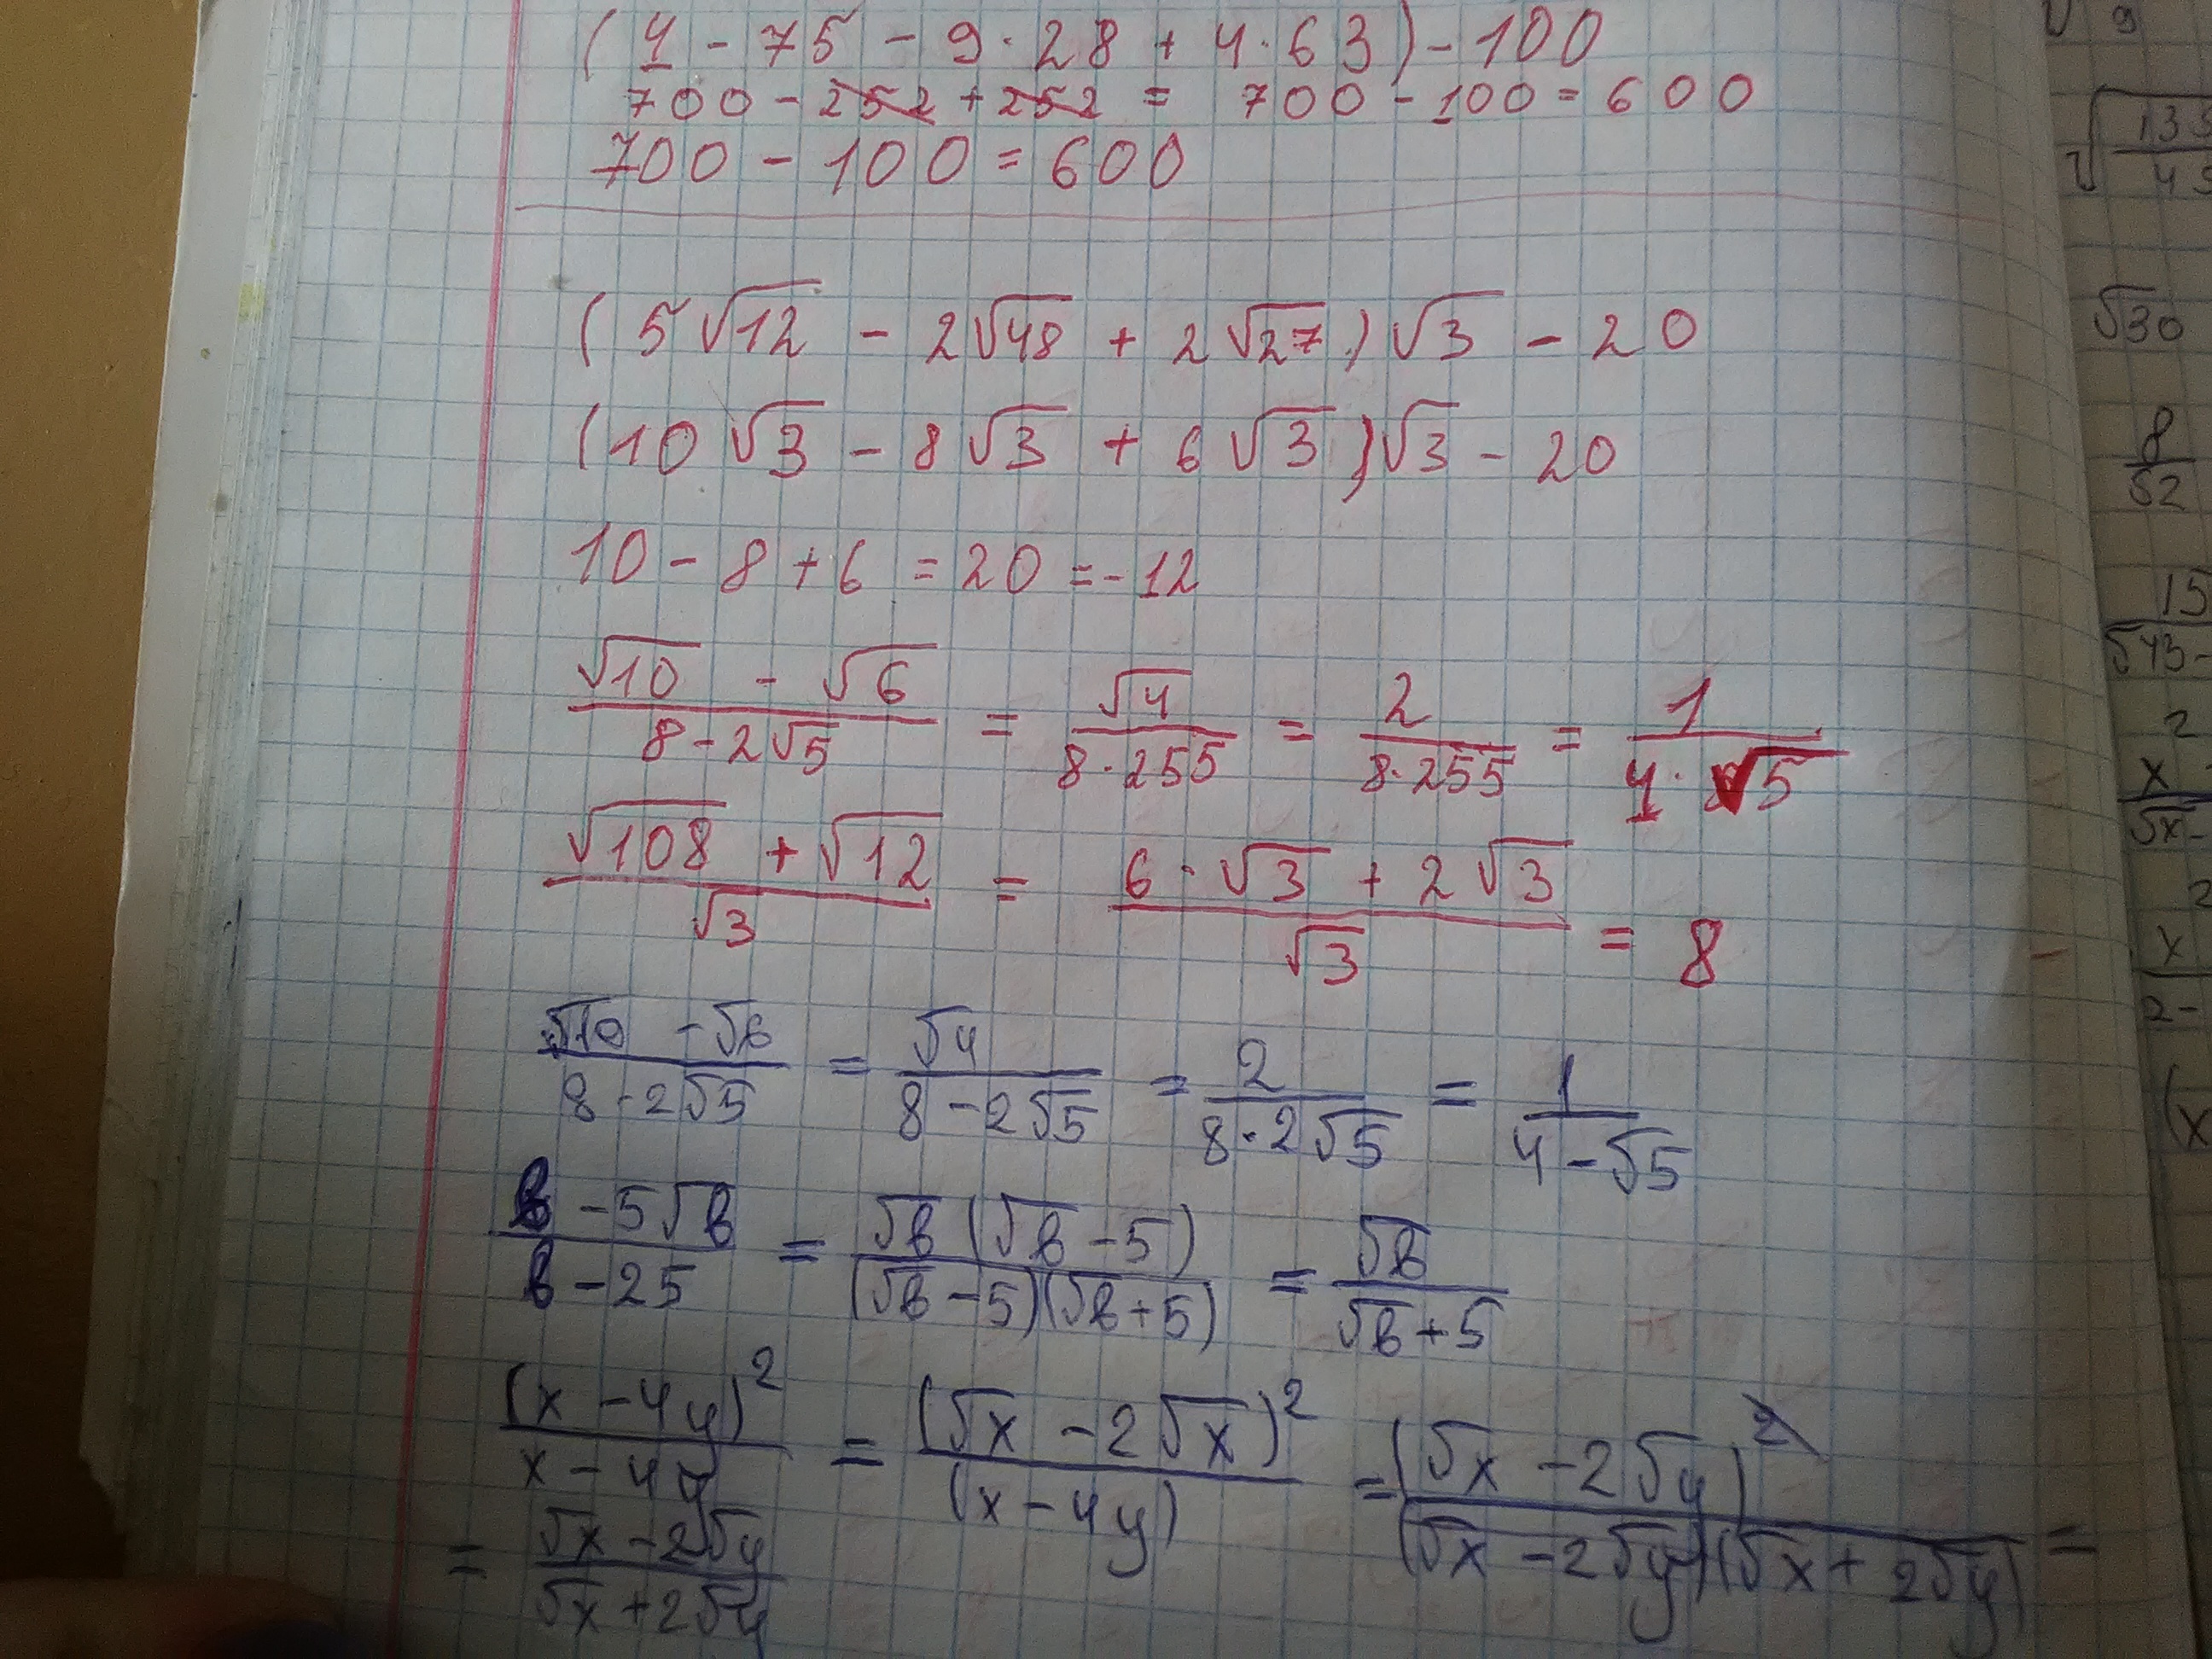 (4 - 75 - 9·28 + 4·63) - 100
700 - 252 + 252 = 700 - 100 = 600
700 - 100 = 600
(5√12 - 2√48 + 2√27)√3 - 20
(10√3 - 8√3 + 6√3)√3 - 20
10 - 8 + 6 = 20 = -12
(√10 - √6)/(8 - 2√5) = √4/(8·255) = 2/(8·255) = 1/(4·√5)
(√108 + √12)/√3 = (6·√3 + 2√3)/√3 = 8
(√10 - √6)/(8 - 2√5) = √4/(8 - 2√5) = 2/(8·2√5) = 1/(4 - √5)
(b - 5√b)/(b - 25) = √b(√b - 5)/((√b - 5)(√b + 5)) = √b/(√b + 5)
(x - 4y)²/(x - 4y) = (√x - 2√x)²/(x - 4y) = (√x - 2√y)²/((√x - 2√y)(√x + 2√y)) =
= (√x - 2√y)/(√x + 2√y)
9
√30
8/√2
15
2
x
2
x
2-
(x